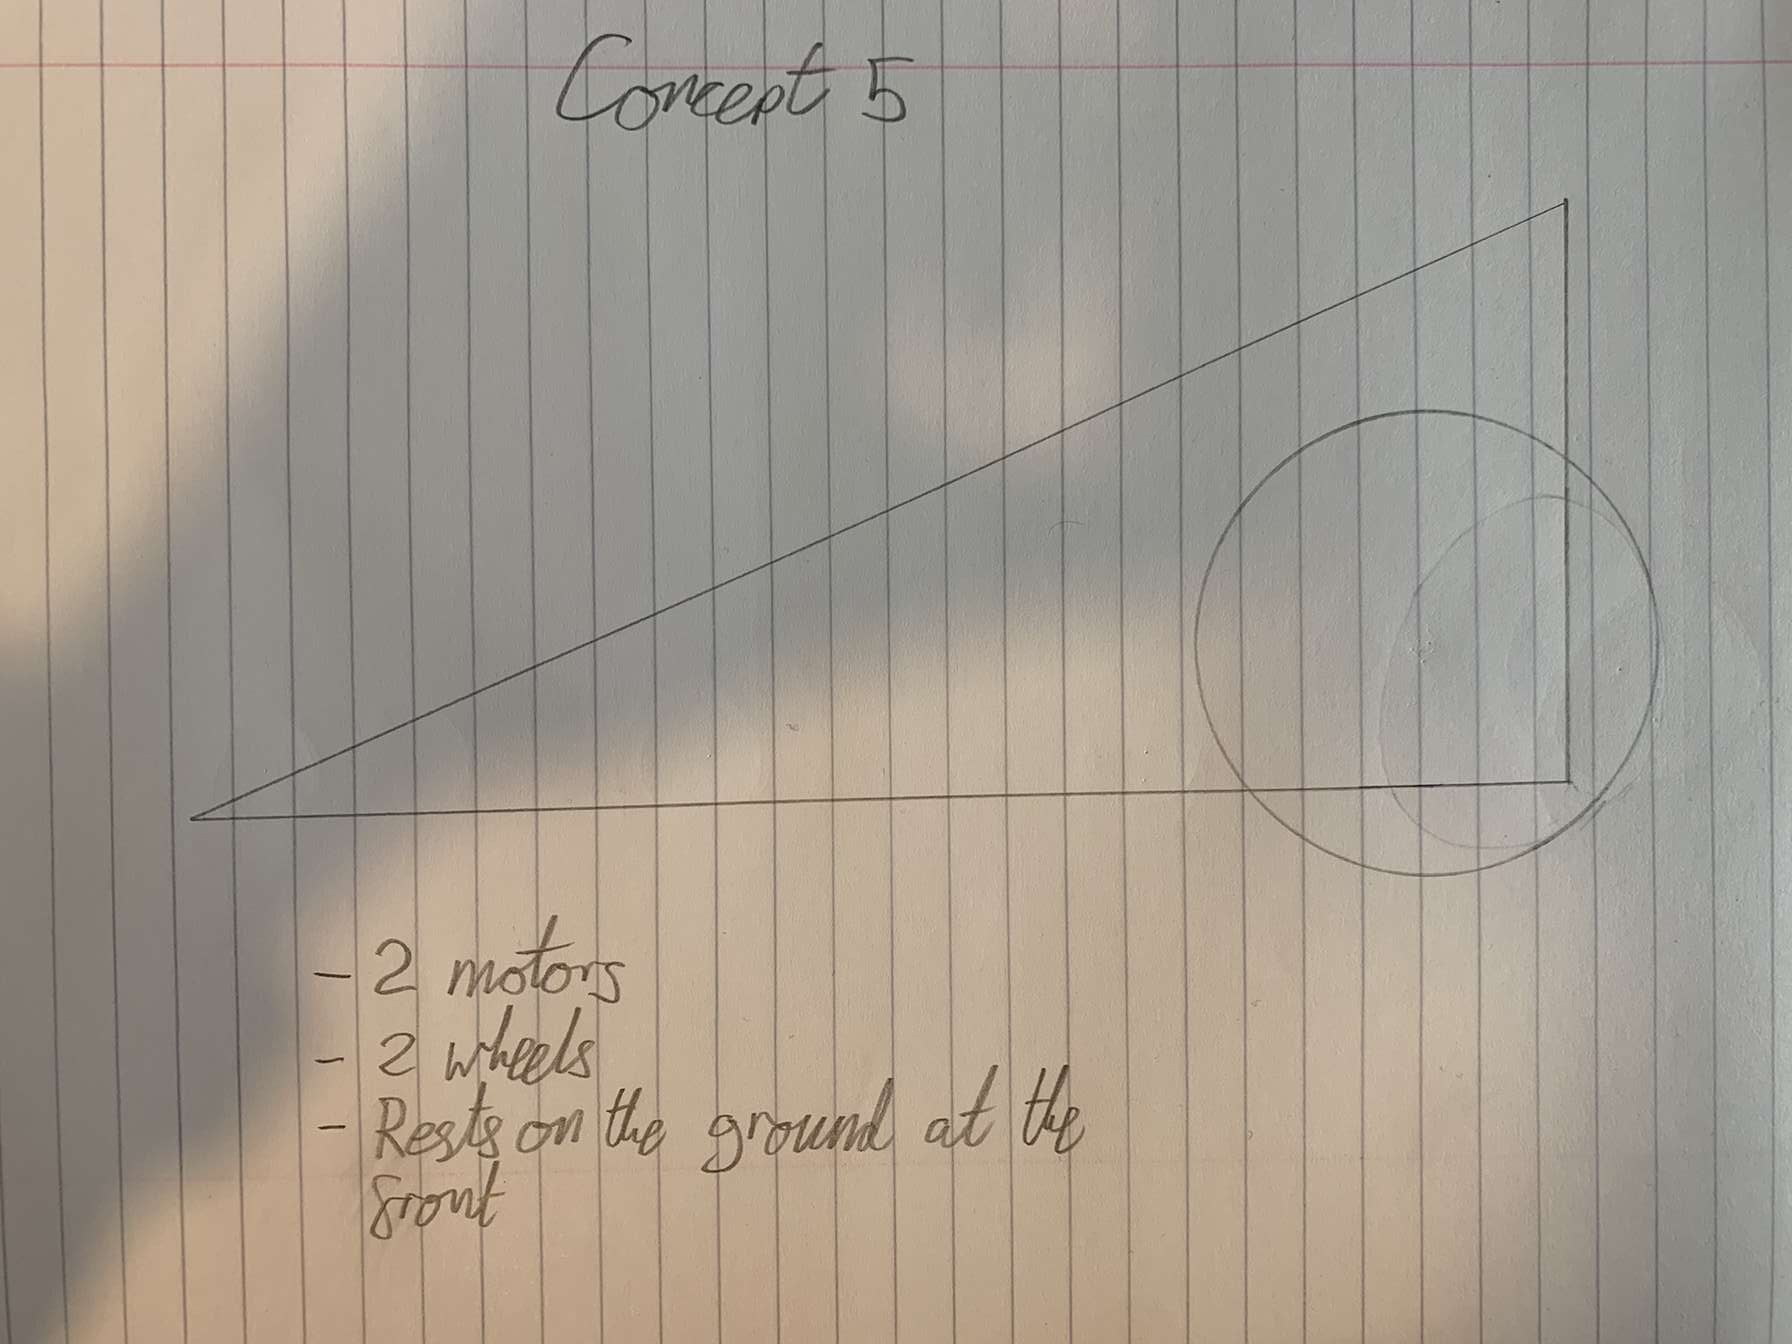 Concept 5
- 2 motors
- 2 wheels
- Rests on the ground at the
front